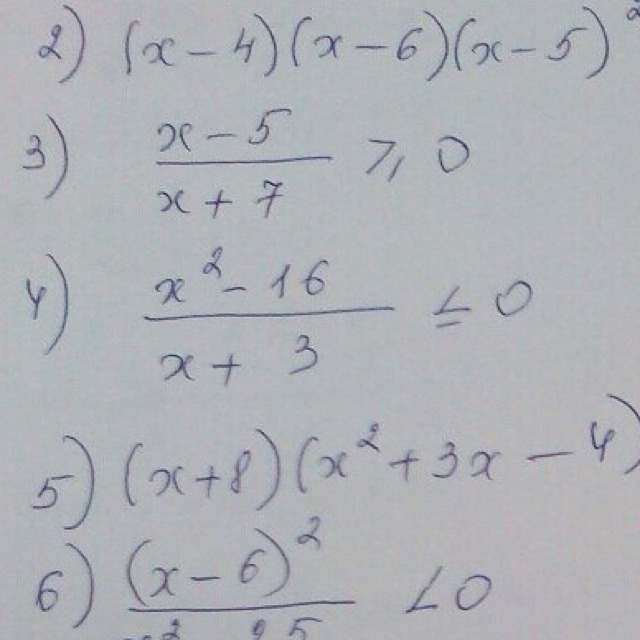 2) (x - 4)(x - 6)(x - 5)²
3) x - 5 / x + 7 ⩾ 0
4) x² - 16 / x + 3 ≤ 0
5) (x+8)(x² + 3x - 4)
6) (x - 6)² / x² - 25 < 0